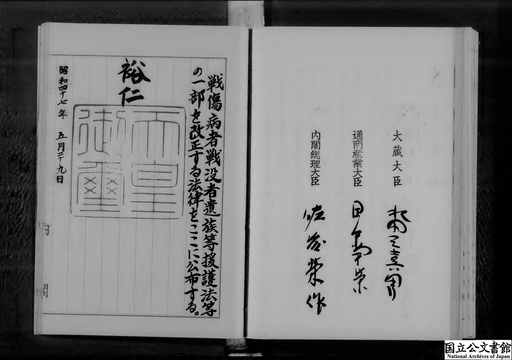 大蔵大臣 水田三喜男
通商産業大臣 田中角栄
内閣総理大臣 佐藤栄作
戦傷病者戦没者遺族等援護法等
の一部を改正する法律をここに公布する。
裕仁
天皇
御璽
昭和四十七年 五月二十九日
内 閣
国立公文書館
National Archives of Japan